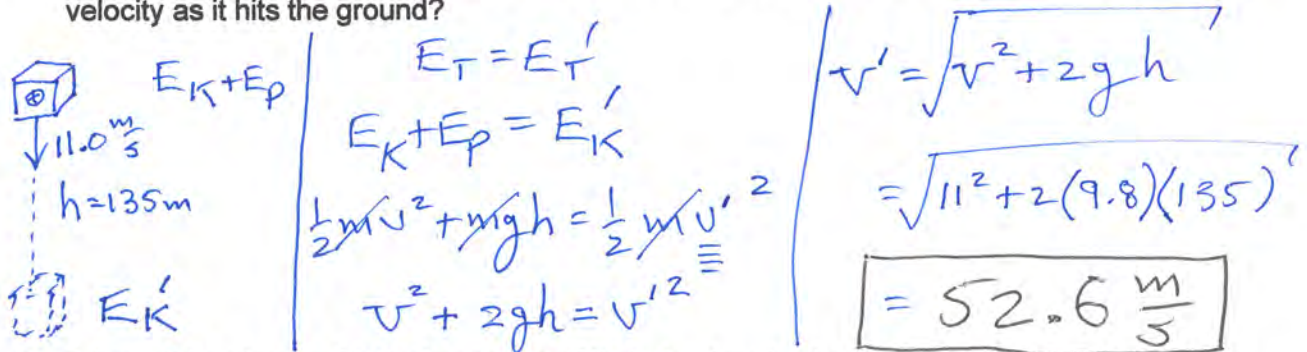 velocity as it hits the ground?
E_K+E_P
11.0 m/s
h=135m
E_K'
E_T = E_T'
E_K+E_P = E_K'
1/2 mv² + mgh = 1/2 mv'²
v² + 2gh = v'²
v' = √(v²+2gh)
= √(11²+2(9.8)(135))
= 52.6 m/s